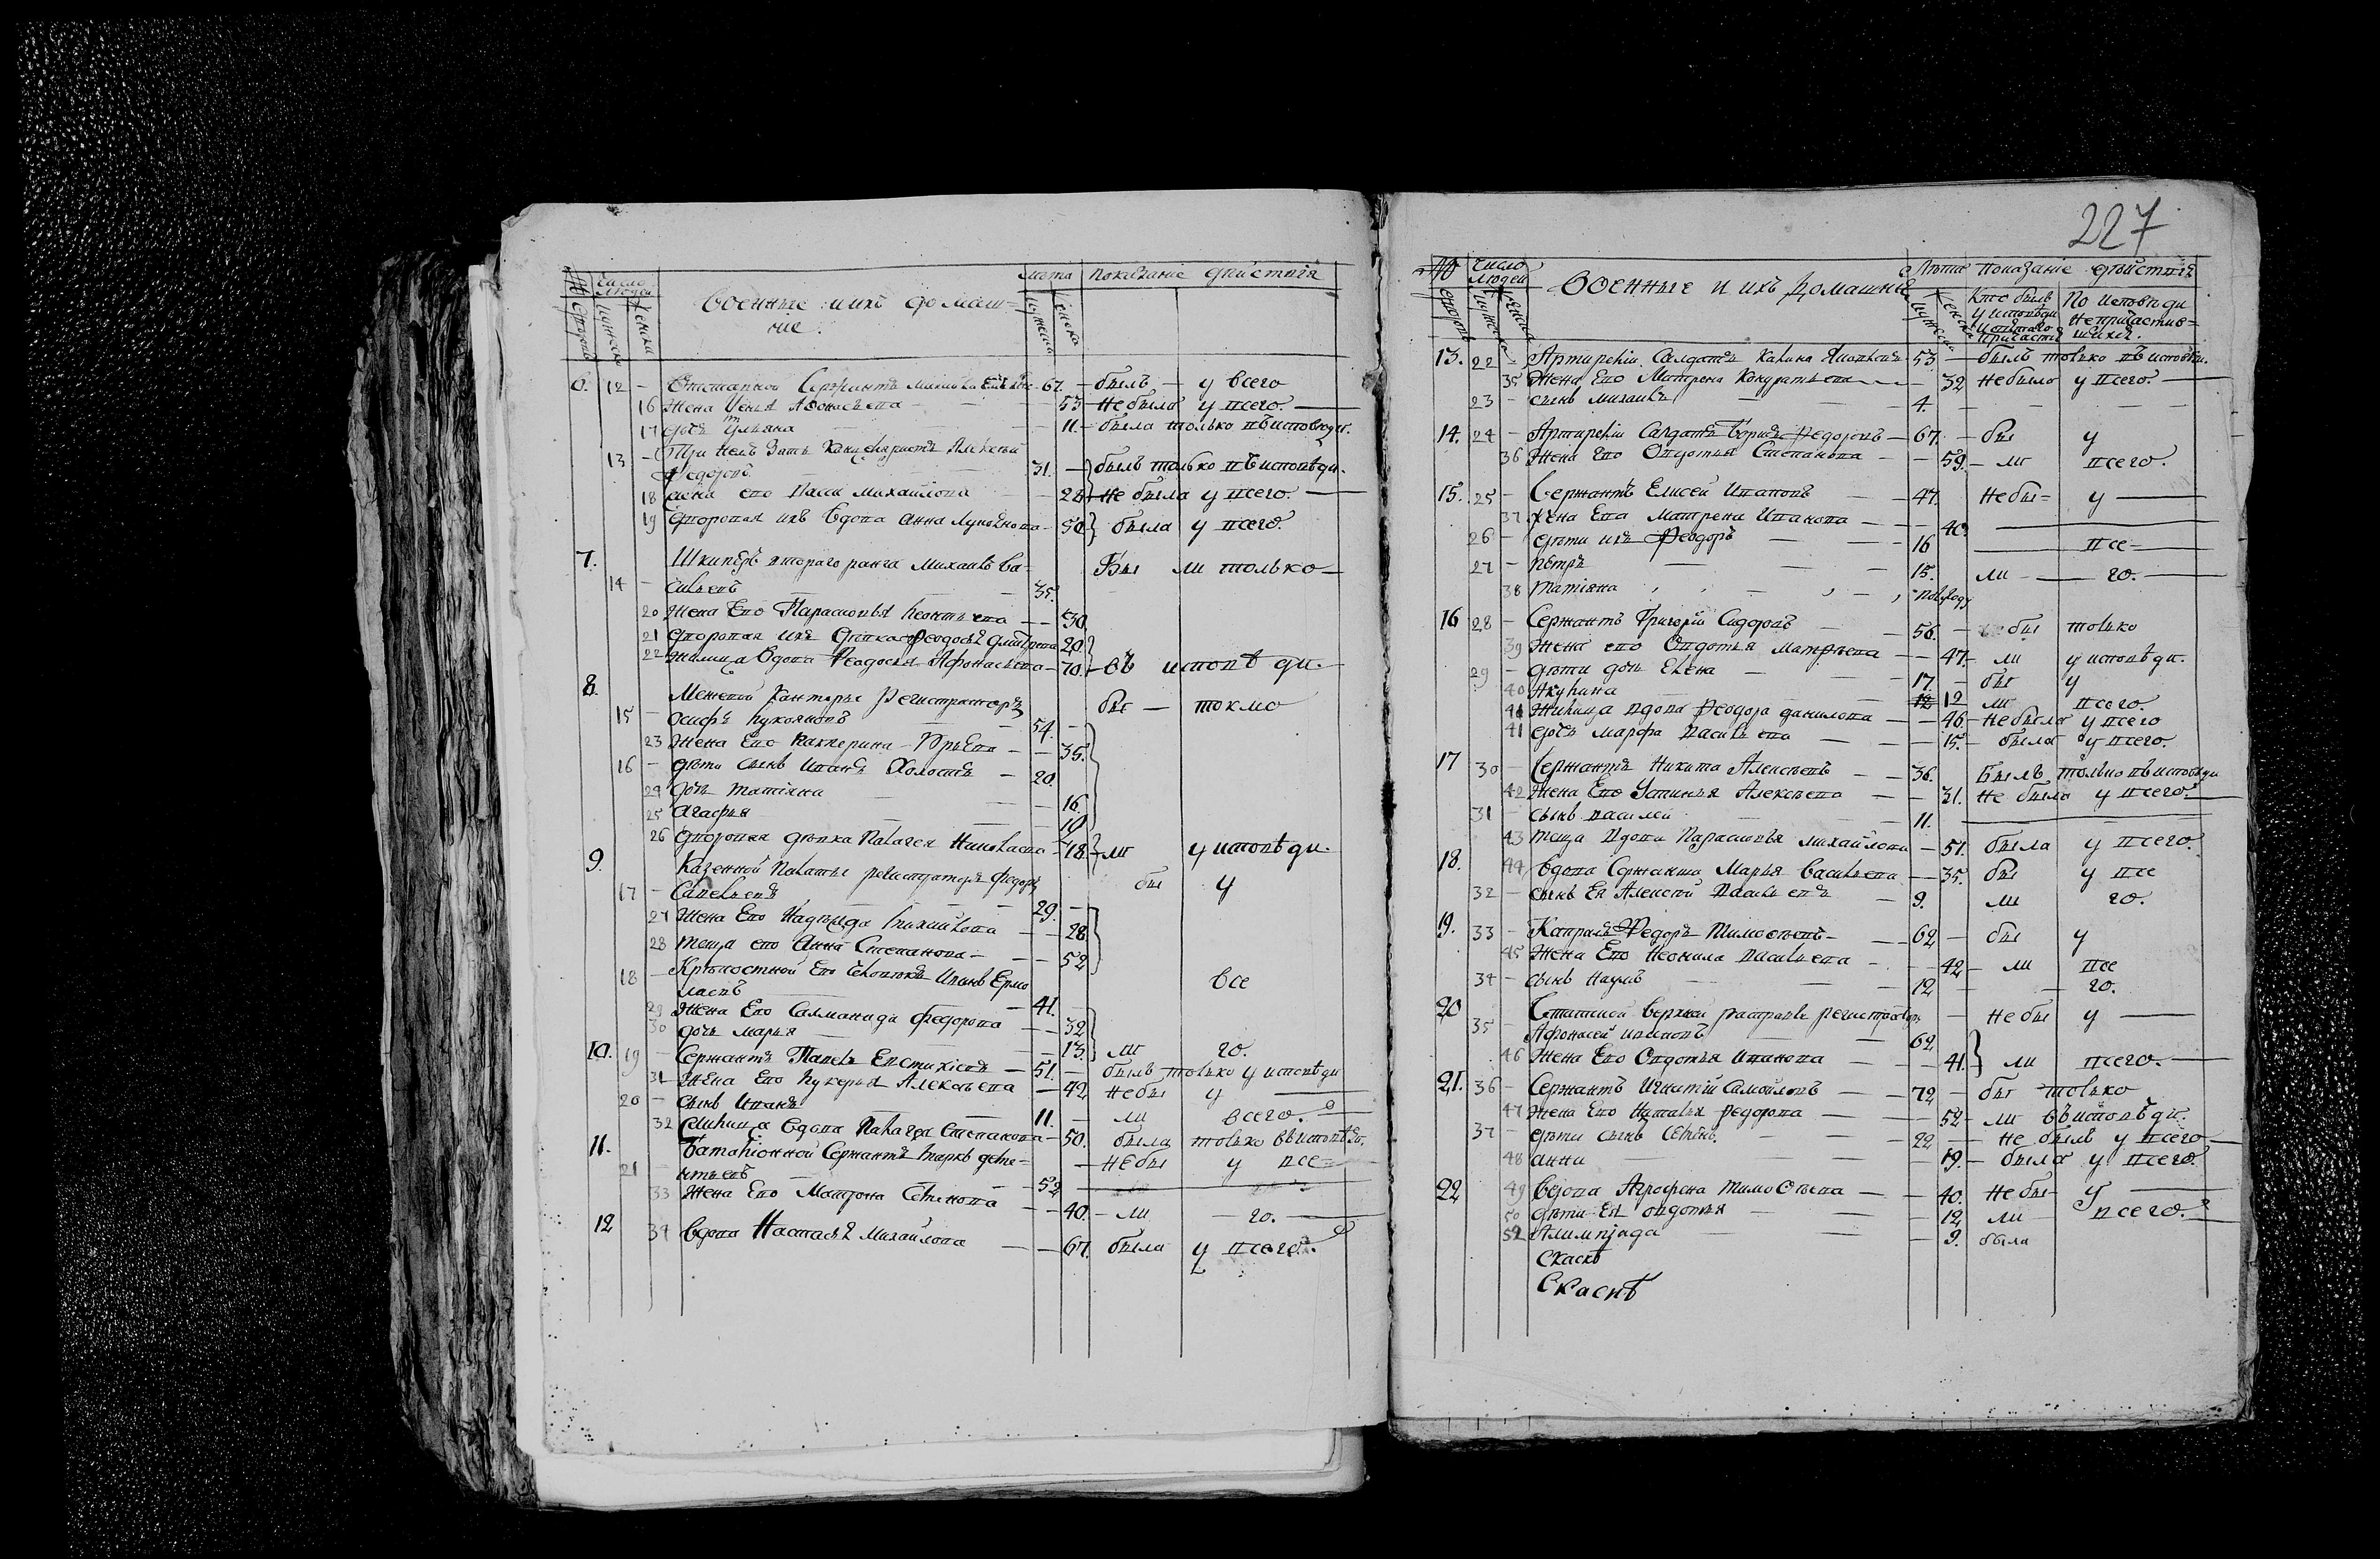 № Число людей Военные и ихъ домаш= лета показание действия
дворовъ мужеска женска ние. мужеска женска
6. 12 – Отставной Сержантъ 67. – былъ – у всего
16 Жена Афонасьева – 53 – не была у всего.
17 дочь ульяна – 11. – была только въ исповеди.
При немъ зять Канцеляристъ Алексей
13 – Федоровъ 31. – былъ только въ исповеди.
18 жена ево Михайлова – не была у всего.
19 дворовая ихъ вдова анна – 50 была у всего.
7. Шкиперъ втораго ранга Михаилъ Ва= Бы ли только
14 – сильевъ 35.
20 Жена Ево Парасковья Леонтьева – 30
21 дворовая ихъ девка Феодосья 20.
22 Жилица вдова Феодосья Афонасьева – 70. въ исповѣди.
8. Межевой Канторы Регистраторъ бы – токмо
15 – осифъ Лукояновъ 54. –
23 Жена Ево Катерина – 35.
16 – дети сынъ иванъ холостъ – 20.
24 дочь татiяна – 16.
25 Агафья – 10
26 дворовая девка Палагея Николаева – 18. – ли у исповѣди.
9. Казенной Палаты регистраторъ Федоръ бы у
17 – Савельевъ 29. –
27 Жена Ево Надежда Михайлова – 28
28 теща ево Анна Степанова – 52
18 – Крепостной Ево Человекъ Иванъ Ермо все
лаевъ 41. –
29 Жена Ево Саламанида Федорова – 32
30 дочь марья – 13. ли го.
10. 19 – Сержантъ Павелъ Евстихiевъ – 51. – былъ только у исповѣди
31 Жена Ево Лукерья Алексѣева – 42 не бы у
20 – сынъ Иванъ 11. – ли всего.
32 Жилица вдова Палагея Степанова – 50. была только въ исповѣди.
11. Баталiонной Сержантъ Марко деме= – не бы у все=
21 – нтьевъ 52
33 Жена Ево Матрона Семенова – 40. – ли – го.
12 34 вдова Настасья Михайлова – 67. была у всего.
227
№ Число людей Военные и ихъ Домашние Лета показанiе действия
дворовъ мужеска женска мужеска женска Кто былъ у исповеди и святаго причастiя По исповеди непричастив= шихся.
13. 22 – Артилерiи Салдатъ 53. – былъ только въ исповѣди.
35 Жена Ево Матрена Кондратьева – 32 не была у всего.
23 – сынъ михаилъ 4. –
14. 24 – Артилерiи Салдатъ Борисъ Федоровъ – 67. – бы у
36 Жена Ево Овдотья Степанова – 59. – ли всего.
15. 25 – Сержантъ Елисей Ивановъ 47. не бы= у
37 Жена Ева матрена Иванова – 40.
26 – дети ихъ Феодоръ 16 все=
27 – Петръ 15. ли – го.
38 татiяна полугоду
16 28 – Сержантъ Григорей Сидоровъ 56. – бы только
39 Жена ево Овдотья Матвѣева – 47. – ли у исповѣди.
29 – дети дочь Елена 17. – бы у
40 Акулина 12 12 ли всего.
41 Жилица вдова Феодора данилова – 46. – не была у всего
41 дочь марфа Васильева – 15. – была у всего.
17 30 – Сержантъ Никита Алексѣевъ – 36. Былъ только въ исповеди
42 Жена Ево Устинья Алексѣева – 31. не была у всего.
31 – сынъ василей 11.
43 теща вдова Парасковья михайлова – 51. была у всего.
18. 44 вдова Сержанша Марья Васильева – 35. бы у все
32 – сынъ Ея Алексей Васильевъ 9. ли го.
19. 33 – Капралъ Федоръ Тимофеевъ – 62 – бы у
45 Жена Ево Неонила Васильева – 42 – ли все
34 – сынъ Наумъ 12 – го.
20 растравы регистраторъ – не бы у
35 – Афонасей 62
46 Жена Ево Овдотья Иванова – 41. ли всего.
21. 36 – Сержантъ Игнатiй Самойловъ – 72 – бы только
47 Жена Ево Наталья Федорова – 52 – ли въ исповѣди.
37 – дети сынъ Семенъ 22 – не былъ у всего
48 анна 19. – была у всего.
22 49 вдова Агрофена Тимофѣева – 40. не бы у
50 дети Ея овдотья 12 ли всего.
52 Алимпiада 9. была
Скаскѣ
Скаскѣ